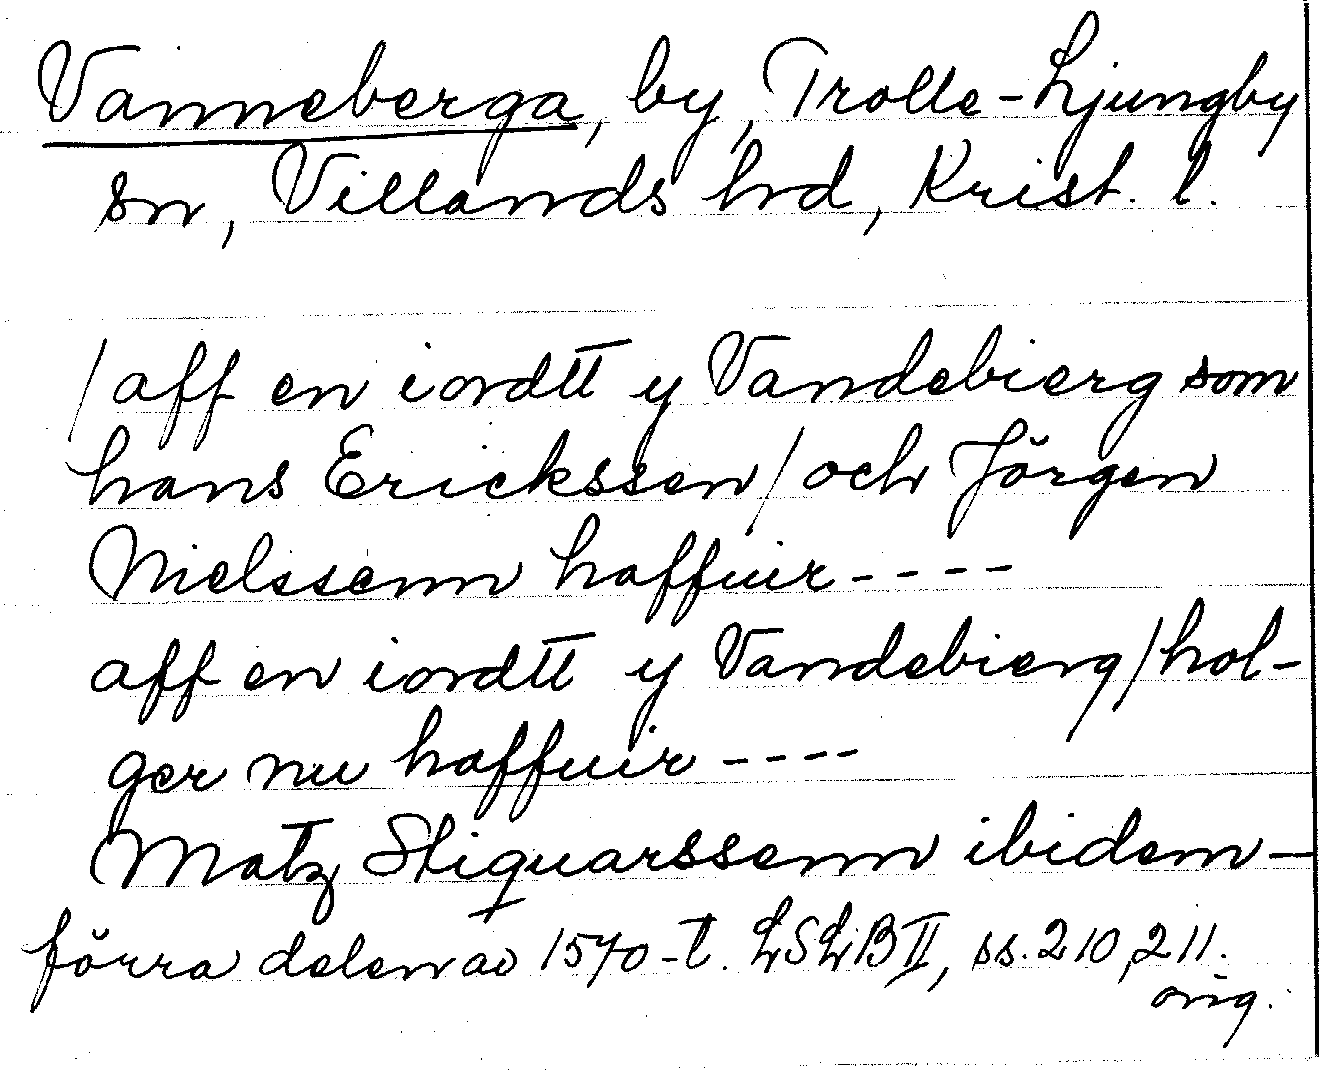 Vanneberga, by, Trolle-Ljungby
sn, Villands hrd, Krist. l.
/aff en iordtt y Vandebierg som
hans Erickssen/och Jörgen
Nielssenn haffuir----
aff en iordtt y Vandebierg/hol-
ger nu haffuir----
Matz Stiguarssenn ibidem-
förra delen av 1570-t. LSLB II, ss. 210, 211.
orig.